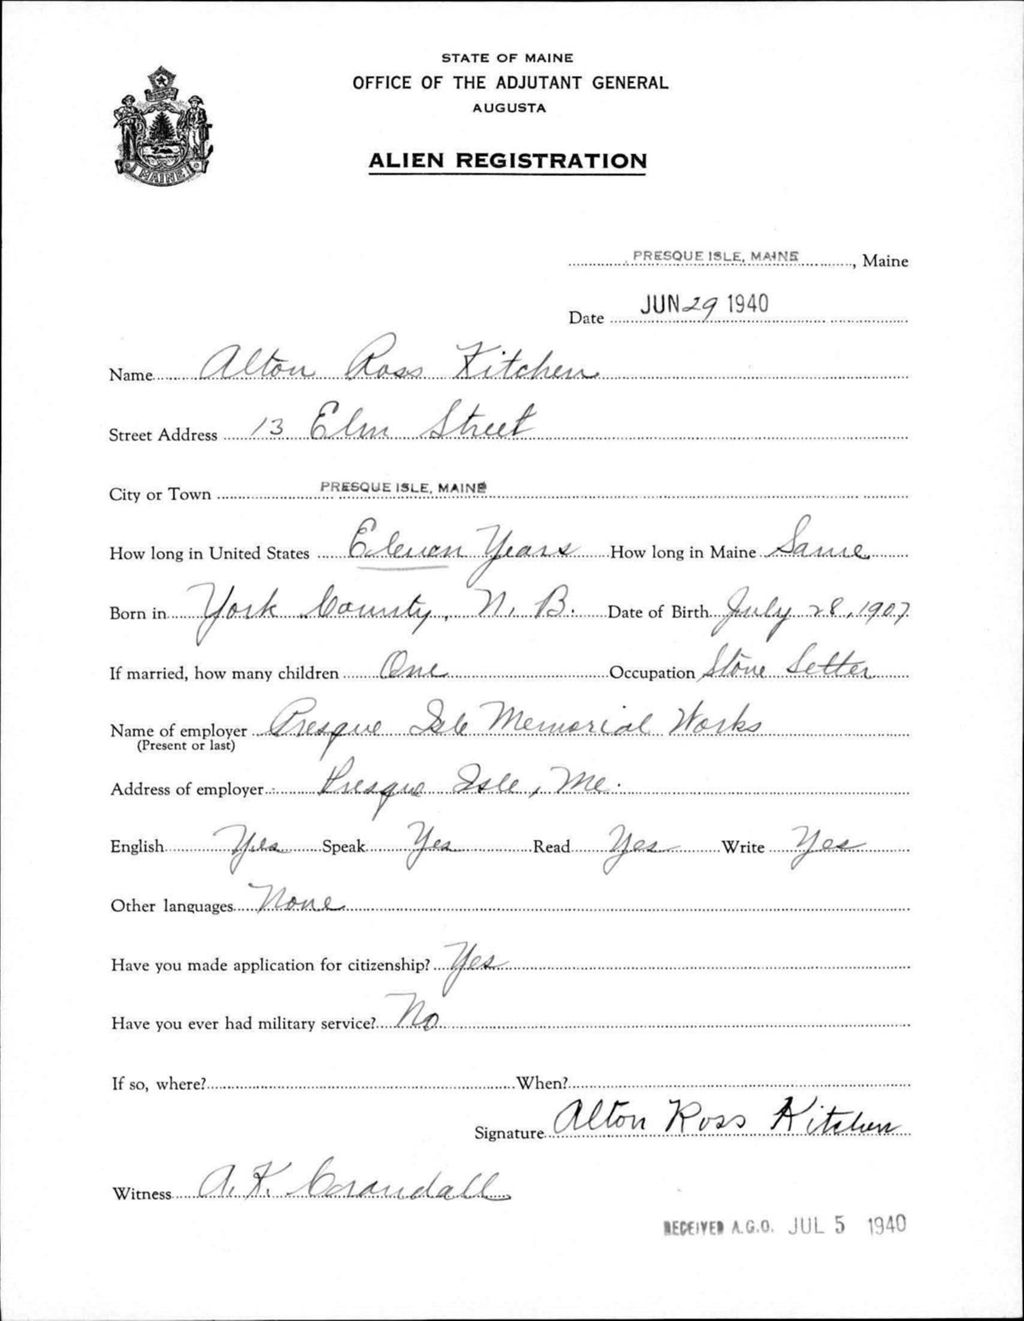 STATE OF MAINE
OFFICE OF THE ADJUTANT GENERAL
AUGUSTA
ALIEN REGISTRATION
MAINE
PRESQUE ISLE, MAINE, Maine
Date JUN 29 1940
Name Alton Ross Kitchen
Street Address 13 Elm Street
City or Town PRESQUE ISLE, MAINE
How long in United States Eleven Years How long in Maine Same
Born in York County, N. B. Date of Birth July 28, 1907
If married, how many children One Occupation Stone Setter
Name of employer Presque Isle Memorial Works
(Present or last)
Address of employer Presque Isle, Me.
English Yes Speak Yes Read Yes Write Yes
Other languages None
Have you made application for citizenship? Yes
Have you ever had military service? No
If so, where? When?
Signature Alton Ross Kitchen
Witness A. K. Crandall
RECEIVED A.G.O. JUL 5 1940